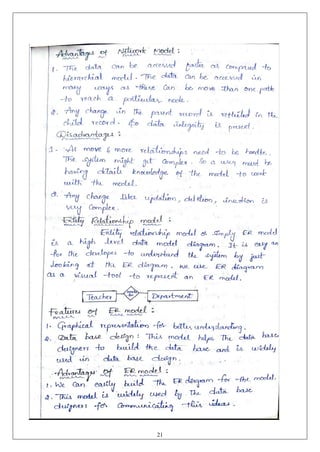 Advantages of Network Model :
1. The data can be accessed faster as compared to
hierarchial model. The data can be accessed in
many ways as there can be more than one path
to reach a particular node.
2. Any change in the parent record is reflected in the
child record. So data integrity is present.
Disadvantages :
1. As more & more relationships need to be handle.
The system might get complex. So a user must be
having details knowledge of the model to work
with the model.
2. Any change like updation, deletion, insertion is
very complex.
Entity Relationship model :
Entity relationship model or simply ER model
is a high level data model diagram. It is easy
for the developer to understand the system by just
looking at the ER diagram. we use ER diagram
as a visual tool to represent an ER model.
Teacher Department
Features of ER model :
1. Graphical representation for better understanding.
2. Data base design: This model helps the data base
designers to build the data base and is widely
used in data base design.
Advantages of ER model :
1. We can easily build the ER diagram for the model.
2. This model is widely used by the data base
designers for communicating their ideas.
21